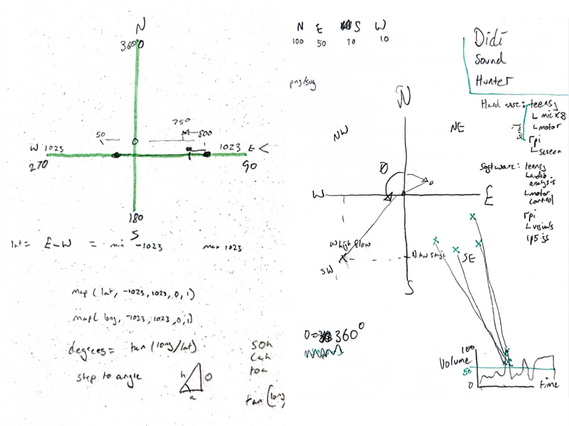 N
360
50
750
500
0
W 1023
1023 E <
270
90
180
S
lat = E-W = min -1023 max 1023
map ( lat, -1023, 1023, 0, 1)
map ( long, -1023, 1023, 0, 1)
degrees = tan (long/lat)
step to angle
h
o
a
soh
cah
toa
tan (long
N E S W
100 50 70 10
png/svg
N
NW
NE
W
E
SW
SE
S
0=360°
Didi
Sound
Hunter
Hardware: teensy
mic x8
motor
rpi
screen
Software: teensy
audio
analysis
motor
control
rpi
visuals
p5.js
100
Volume
50
0
time